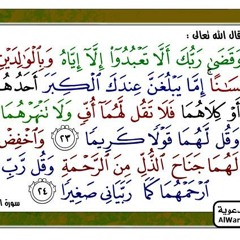 قال الله تعالى :
وَقَضَىٰ رَبُّكَ أَلَّا تَعْبُدُوٓا۟ إِلَّآ إِيَّاهُ وَبِٱلْوَٰلِدَيْنِ
إِمَّا يَبْلُغَنَّ عِندَكَ ٱلْكِبَرَ أَحَدُهُمَآ
أَوْ كِلَاهُمَا فَلَا تَقُل لَّهُمَآ أُفٍّ وَلَا تَنْهَرْهُمَا
وَقُل لَّهُمَا قَوْلًا كَرِيمًا ٢٣ وَٱخْفِضْ
لَهُمَا جَنَاحَ ٱلذُّلِّ مِنَ ٱلرَّحْمَةِ وَقُل رَّبِّ
ٱرْحَمْهُمَا كَمَا رَبَّيَانِى صَغِيرًا ٢٤
سورة
AlWar